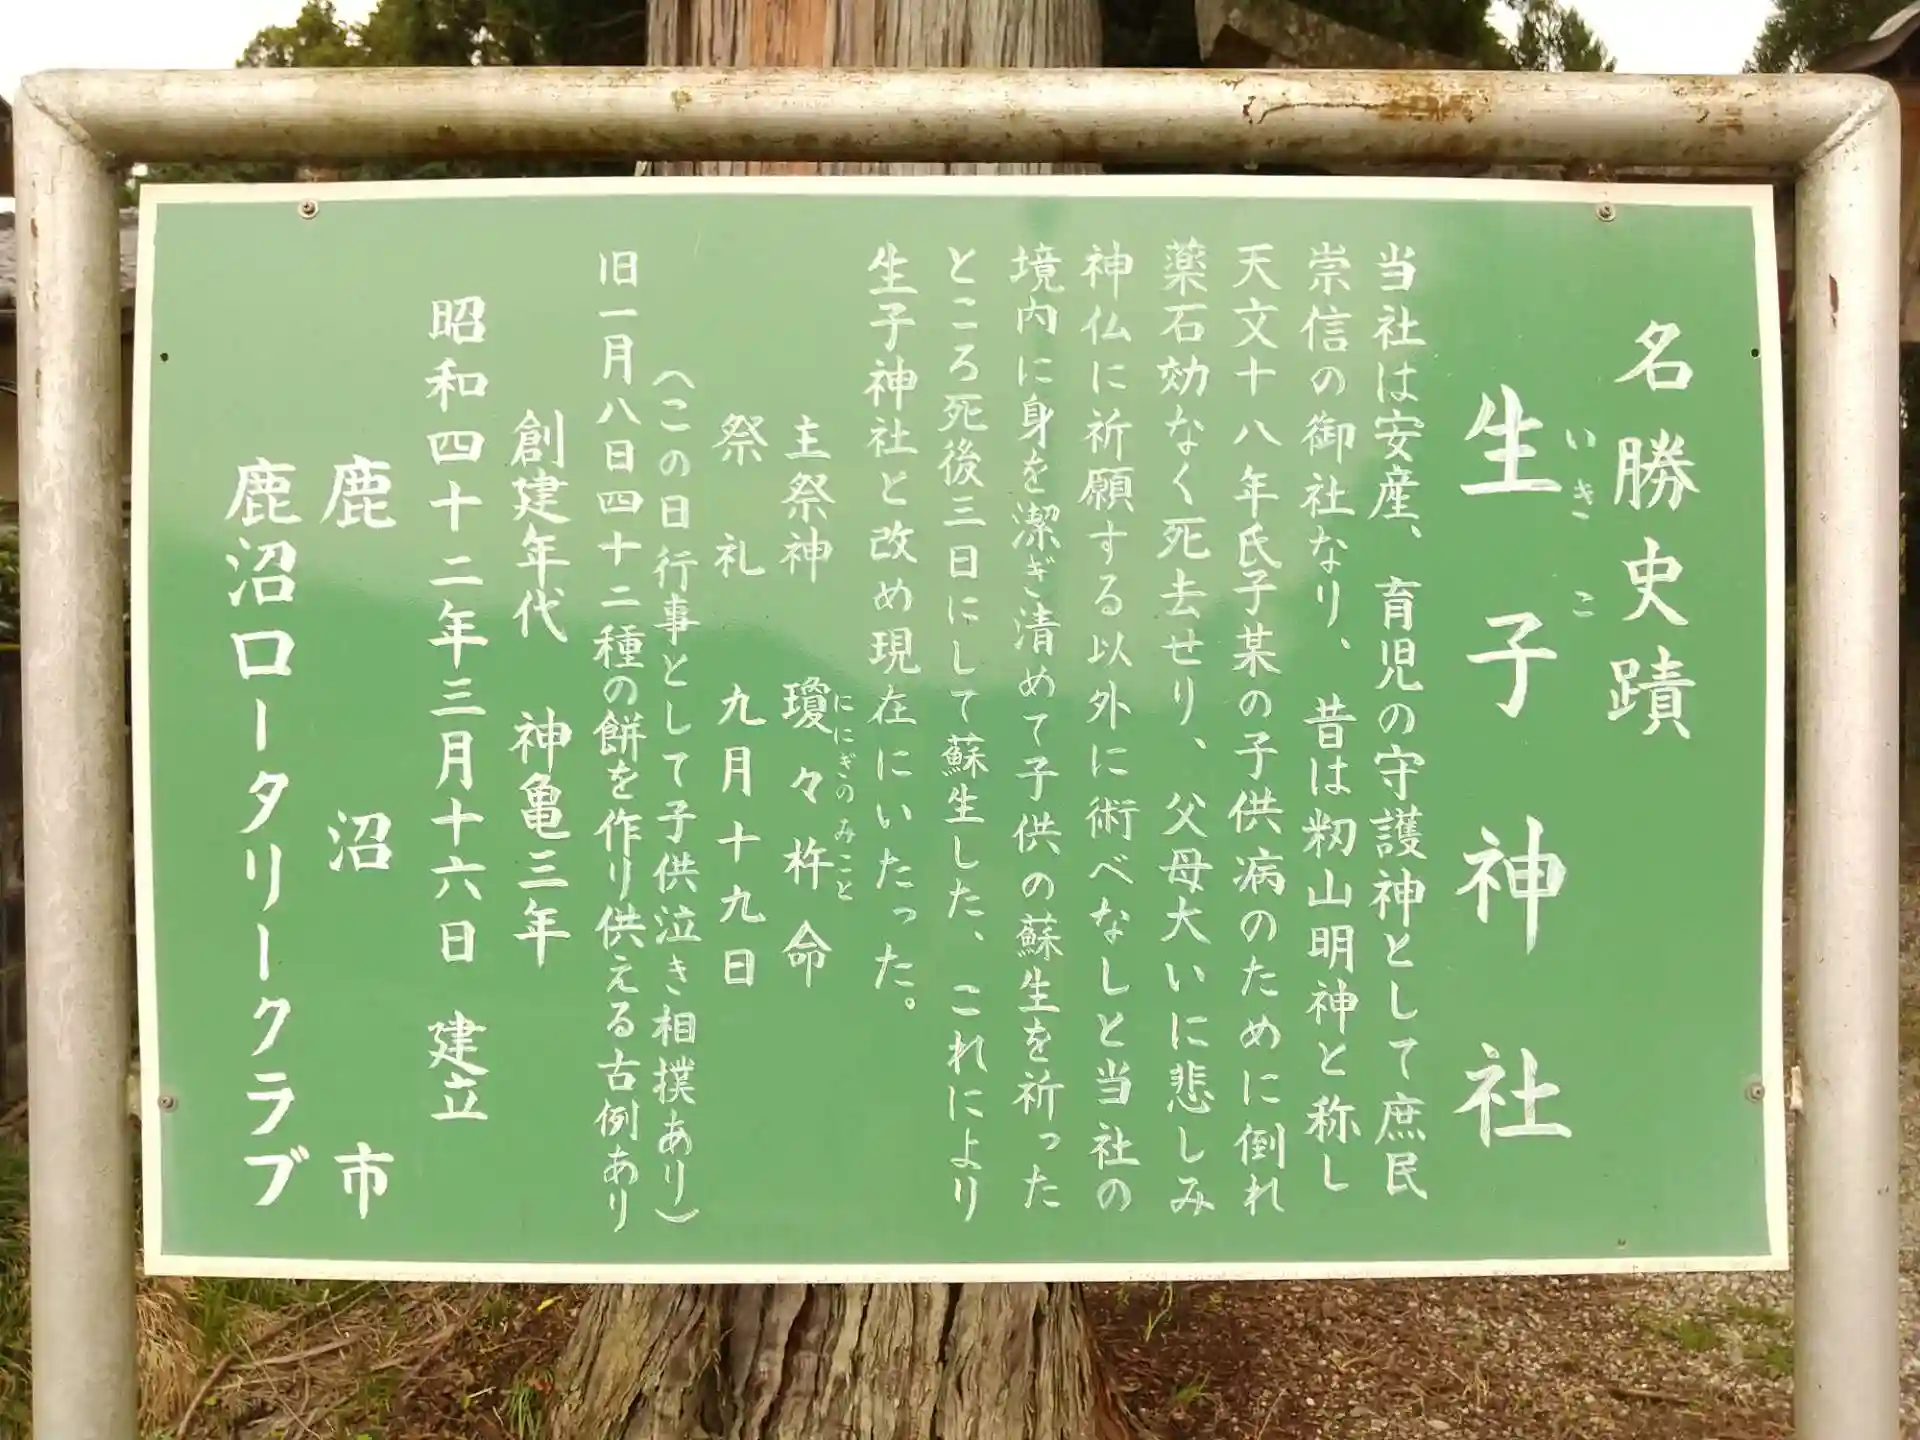 名勝史蹟
生子神社
いきこ
当社は安産、育児の守護神として庶民
崇信の御社なり、昔は籾山明神と称し
天文十八年氏子某の子供病のために倒れ
薬石効なく死去せり、父母大いに悲しみ
神仏に祈願する以外に術べなしと当社の
境内に身を潔ぎ清めて子供の蘇生を祈った
ところ死後三日にして蘇生した、これにより
生子神社と改め現在にいたった。
主祭神 瓊々杵命
ににぎのみこと
祭礼 九月十九日
(この日行事として子供泣き相撲あり)
旧一月八日四十二種の餅を作り供える古例あり
創建年代 神亀三年
昭和四十二年三月十六日 建立
鹿沼市
鹿沼ロータリークラブ